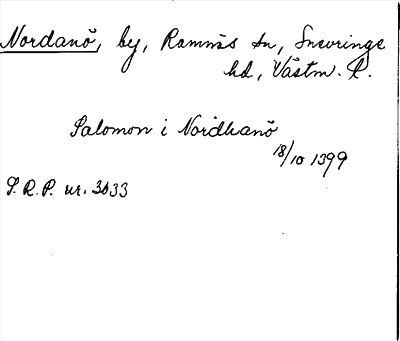 Nordanö, by, Ramnäs sn, Snevringe
hd, Västm. l.
Salomon i Nordhanö
18/10 1399
S.R.P. nr. 3033